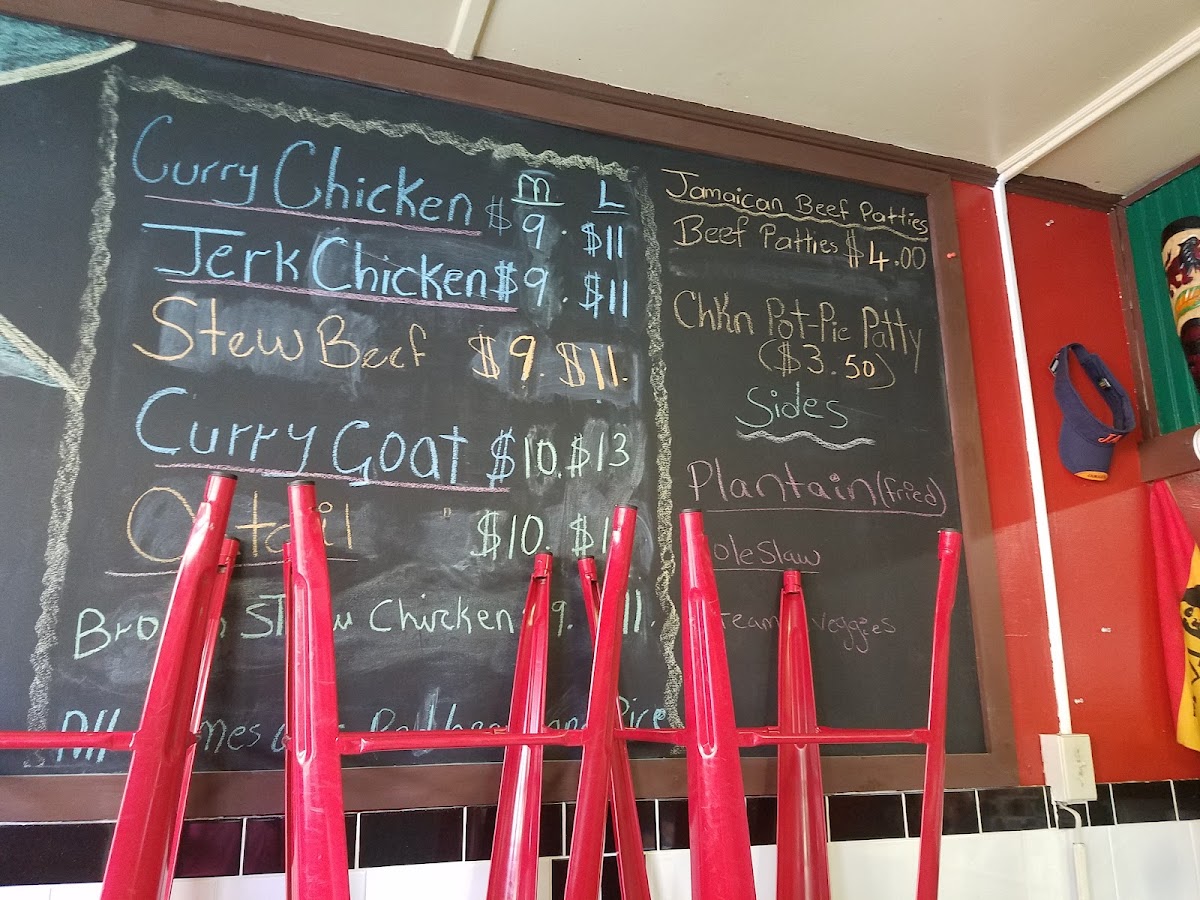 m L
Curry Chicken $9. $11
Jerk Chicken $9. $11
Stew Beef $9. $11.
Curry Goat $10. $13
$10.
Chicken 9. 11.
Rice
Jamaican Beef Patties
Beef Patties $4.00
Chkn Pot-Pie Patty
($3.50)
Sides
Plantain (fried)
oleSlaw
team veggies